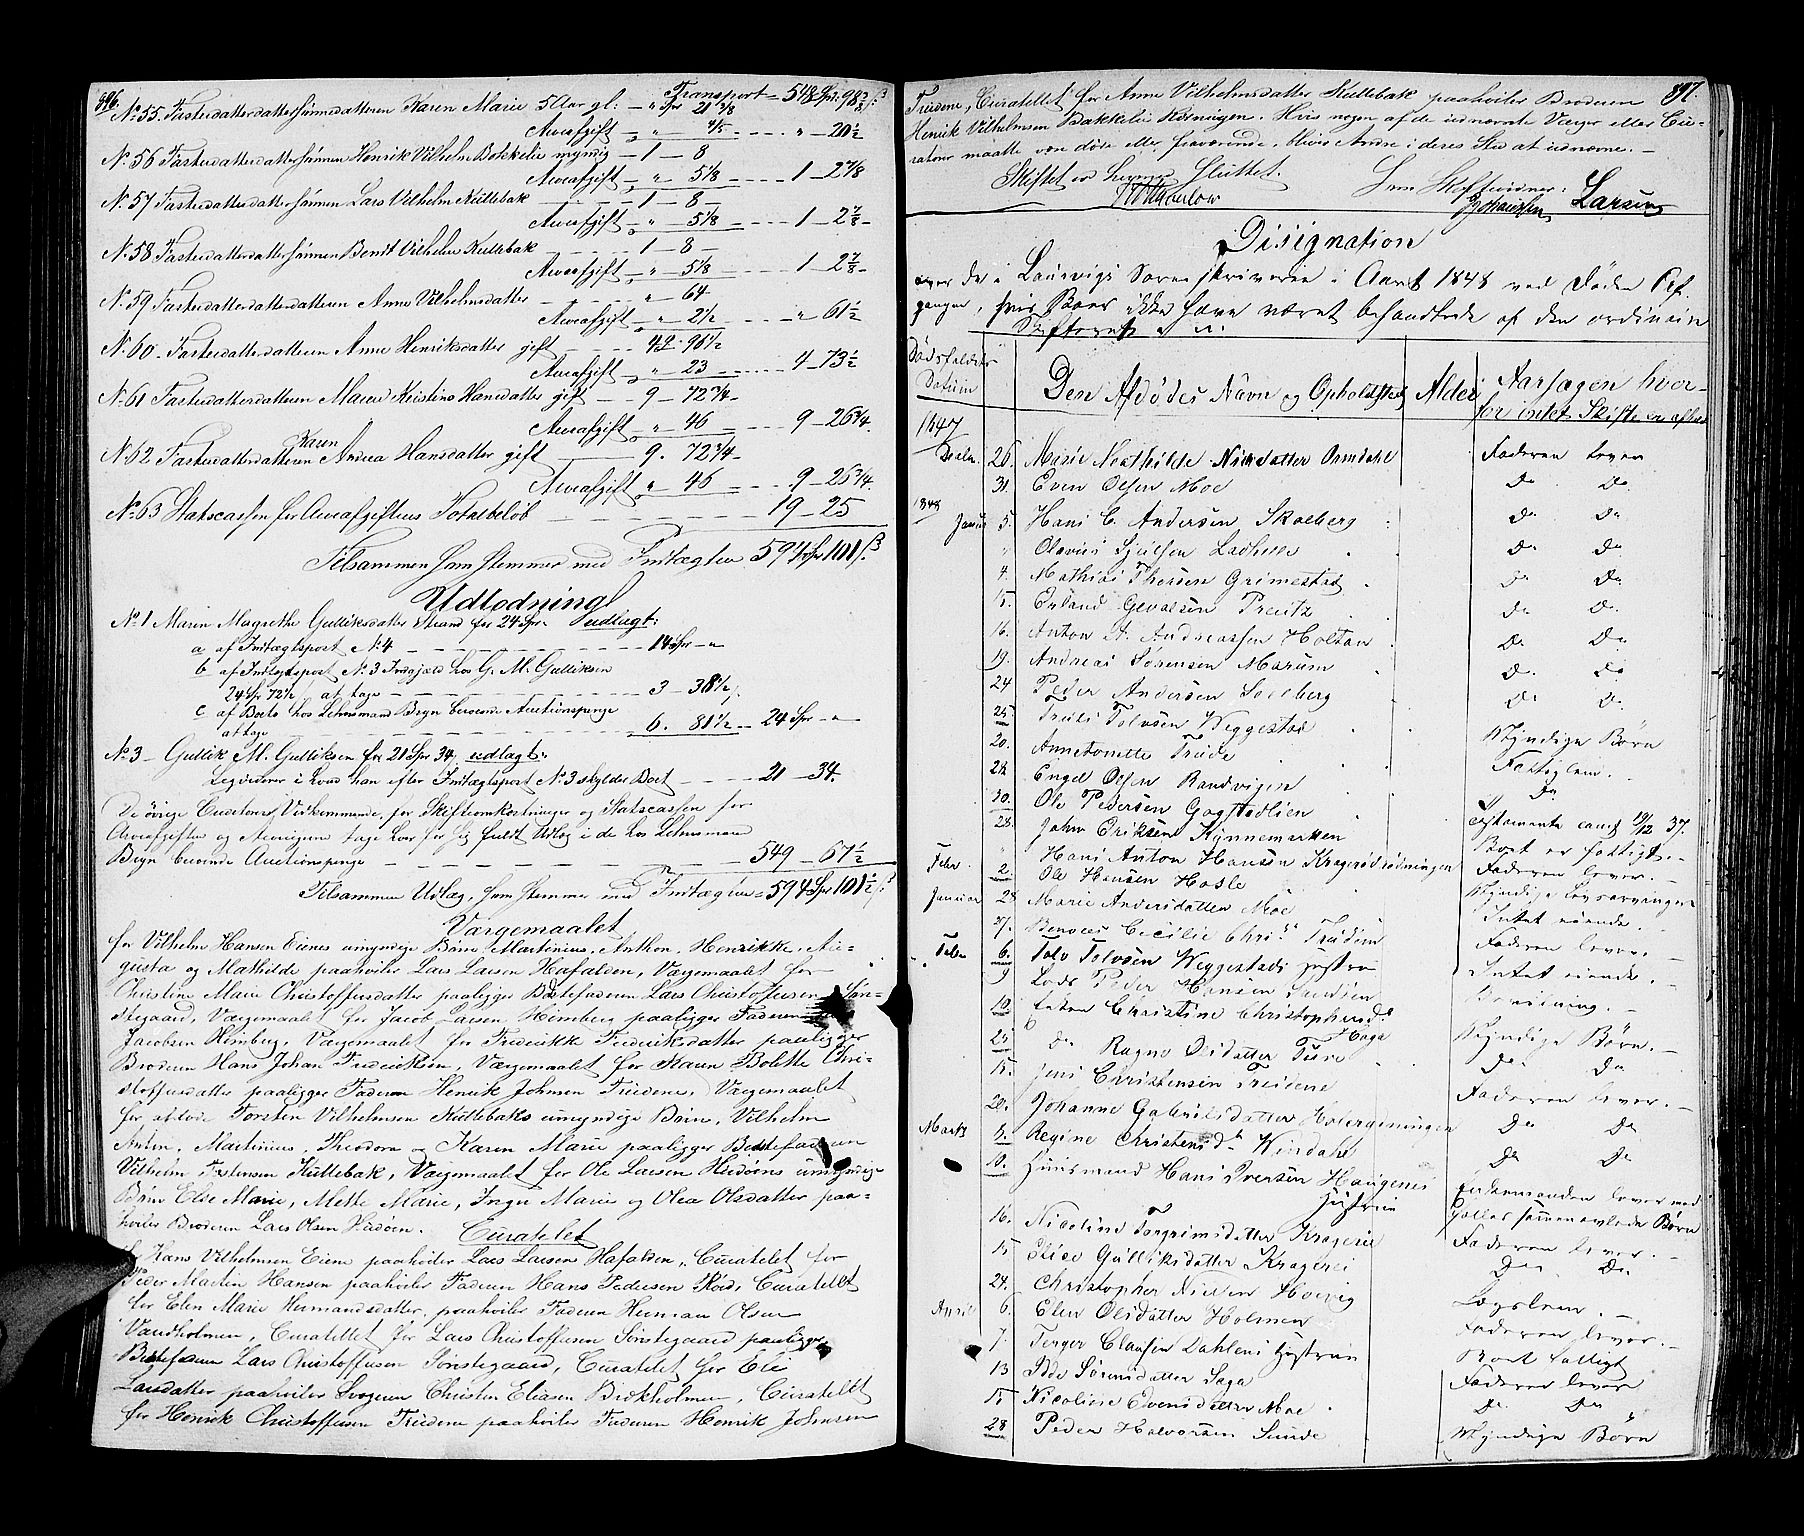 896.
Transport = 548 Spd: 98 3/8 ß
No 55. Fasterdatterdattersønnedatteren Karen Marie 5 Aar gl: - " Spr 21 3/8
Arveafgift - " - 4/5 - - - - " - 20 1/2
No. 56 Fasterdatterdattersønnen Henrik Vilhelm Bakkelie myndig - 1 - 8
Arveafgift - " - 5 1/8 - - - - 1 - 2 7/8
No. 57 Fasterdatterdattersønnen Lars Vilhelm Kullebak - 1 - 8 -
Arveafgift - " - 5 1/8 - - - - 1 - 2 7/8 -
No. 58 Fasterdatterdattersønnen Bendt Vilhelm Kullebak - - - 1 - 8 -
Arveafgift - " - 5 1/8 - - - - 1 - 2 7/8 -
No. 59 Fasterdatterdatterdatteren Anne Vilhelmsdatter - - - " - 64
Arveafgift " - 2 1/2 - - - " - 61 1/2
No. 60 - Fasterdatterdatteren Anne Henriksdatter gift - - - 4 - 96 1/2
Arveafgift - " - 23 - - - - 4 - 73 1/2
No. 61 Fasterdatterdatteren Maren Kristine Hansdatter gift - - 9 - 72 3/4 -
Arveafgift - " - 46 9 - 26 3/4.
No. 62 Fasterdatterdatteren Karen Andrea Hansdatter gift - - 9 - 72 3/4 -
Arveafgift " - 46 - - - 9 - 26 3/4.
No. 63 Statscassen for Arveafgiftens Totalbeløb - - - - - 19 - 25
Tilsammen som stemmer med Indtægten 594 Spr 101 ß
Udlodning
No. 1 Maren Magrethe Gulliksdatter Strand for 24 Spr. udlagt:
a af Indtægtspost No. 4 - - - - - 14 Spr - "
b af Indtægtspost No. 3 Indgjæld hos G. M. Gulliksen
24 Spr 72 1/2 ß at tage - - - - - 3 - 38 1/2
c af Boets hos Lehnsmand Bryn beroende Auctionspenge
at tage - - - - - 6. 81 1/2 - 24 Spr - "
No. 3 - Gullik M. Gulliksen for 21 Spr 34, udlagt:
Legverer i hvad han efter Indtægtspost No. 3 skylder Boet - - - - 21 - 34.
De øvrige Creditorer, Vedkommende, for Skifteomkostninger og Statscassen for
Arveafgiften og Arvingerne tage hver for sig fuldt Udlæg i de hos Lehnsmand
Bryn beroende Auctionspenge - - - - - 549 - 67 1/2
Tilsammen Udlæg, som stemmer med Indtægten = 594 Spr 101 1/2 ß
Værgemaalet
for Vilhelm Hansen Eienes umyndige Børn, Martinius, Anthon, Henrikke, Au-
gusta og Mathilde paahviler Lars Larsen Hafalden, Værgemaalet for
Christine Marie Christoffersdatter paaligger Bedstefaderen Lars Christoffersen Søn-
stegaard, Værgemaalet for Jacob Larsen Himberg paaligger Faderen
Jacobsen Himberg, Værgemaalet for Frederikk Frederiksdatter paaligger
Broderen Hans Johan Frederiksen, Værgemaalet for Karen Bolette Chri-
stoffersdatter paaligger Faderen Henrik Johnsen Fridene, Værgemaalet
for afdøde Torsten Vilhelmsen Kullebaks umyndige Børn, Vilhelm
Anton, Martinius, Theodora og Karen Marie paaligger Bedstefaderen
Vilhelm Torstensen Kullebak, Værgemaalet for Ole Larsen Hudøens umyndige
Børn Else Marie, Mette Marie, Inger Marie og Olea Olsdatter paa=
hviler Broderen Lars Olsen Hudøen. Curatelet
for Hans Vilhelmsen Eiene paahviler Lars Larsen Hafalden, Curatelet for
Peder Martin Hansen paahviler Faderen Hans Pedersen Røed, Curatelet
for Elen Marie Hermandsdatter, paahviler Faderen Herman Olsen
Vandholmen, Curatellet for Lars Christoffersen Sønstegaard paaligger
Bedstefaderen Lars Christoffersen Sønstegaard, Curatelet for Eli
Larsdatter paahviler Svogeren Christen Eliasen Brokholmen, Curatelet
for Henrik Christoffersen Fridene paahviler Faderen Henrik Johnsen
897.
Fridene, Curatellet for Anne Vilhelmsdatter Kullebak paahviler Broderen
Henrik Vilhelmsen Bakkelie Rødningen. Hvis nogen af de udnævnte Værger eller Cu-
ratorer maatte være døde eller fraværende, blive Andre i deres Sted at udnævne. -
Skiftet er hermed sluttet.
Som Skiftevidner:
Johanssen Larsen
Designation
over de i Laurvigs Sorenskriverie i Aaret 1848 ved Døden Af-
gangne, hvis Boer ikke have været behandlede af den ordinaire
Skifteret
Dødsfaldets Datum
Den Afdødes Navn og Opholdssted
Alder
Aarsagen hvor-
for intet Skifte er afholdt
1847
Decbr. 26. Marie Mathilde Nilsdatter Omdahl Faderen lever
31. Even Olsen Moe Do Do
1848
Januar 5. Hans C. Andersen Skoeberg Do Do
" Olavus Do Do
4. Mathias Thorsen Grimestad Do Do
15. Erland Preutz Do Do
16. Anton A. Andreassen Holtan Do Do
19. Andreas Sørensen Marum Do Do
24 Peder Andersen Solberg Do Do
25 Truls Tolvsen Weggestad Myndige Børn
20. Annetonette Fride Fattiglem. -
28 Engel Olsen Randvigen Do
30. Ole Pedersen Gogstadlien Testamente 19/12 37.
28. John Eriksen Rønnemarken Boet er fattigt. -
" Hans Anton Hansen Kragerødrødningen Faderen lever. -
Febr. 2. Ole Hansen Hasle Myndige Livsarvinger
Januar 28 Marie Andersdatter Moe Intet eiende. -
27. Cecilie Faderen lever. -
Febr 6. Tolv Tolvsen Weggestads Hustrue Intet eiende. -
9 Lods Peder Hansen Bevilning. -
12. Enken Christine Christophersd. Haga Myndige Børn. -
25 Do Ragne Olsdatter Do Do
15. Jens Christensen Fridene Faderen lever. -
20. Johanne Gabrielsdatter Do Do
Marts 5. Regine Christensd. Windahl Do Do
10. Huusmand Hans Iversen Haugenes Hustrue Enkemanden lever med
Fælles sammenavlede Børn
16. Nicoline Torgrimsdatter Kragerø Faderen lever. -
15 Gulliksdatter Do. Do.
24. Christopher Nilsen Høivig Lægslem. -
April 6. Elen Olsdatter Holmen Faderen lever. -
7. Terger Clausen Dahlens Hustrue Boet fattigt
13 Ide Sørensdatter Haga Faderen lever
15 Nicoline Evensdatter Moe Do. Do
28 Peder Halvorsen Sunde Myndige Børn